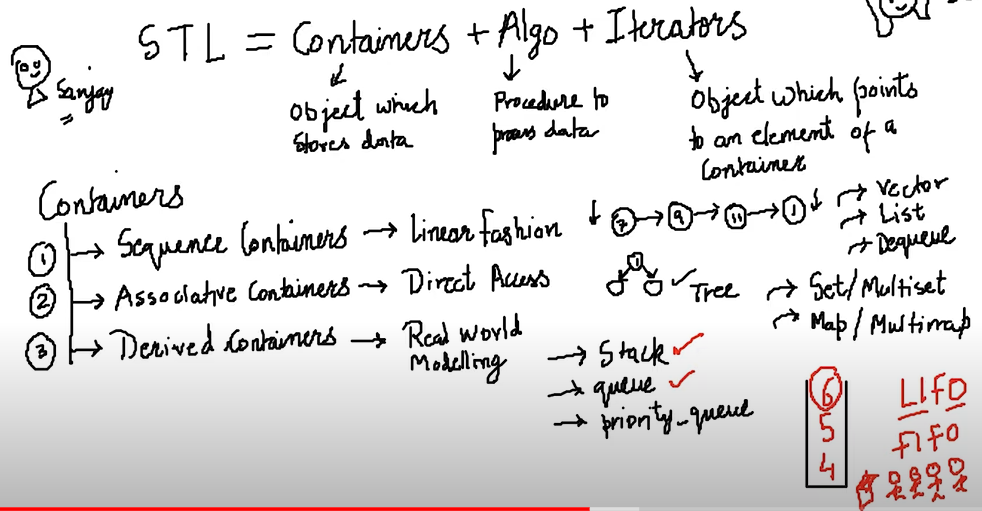 STL = Containers + Algo + Iterators
Sanjay
Object which
Stores data
Procedure to
process data
Object which points
to an element of a
Container
Containers
1 → Sequence Containers → Linear fashion
7 → 9 → 11 → 1
→ Vector
→ List
→ Dequeue
2 → Associative Containers → Direct Access
1
✓ Tree
→ Set/Multiset
→ Map/Multimap
3 → Derived Containers → Real World
Modelling
→ Stack ✓
→ queue ✓
→ priority_queue
6
5
4
LIFO
FIFO